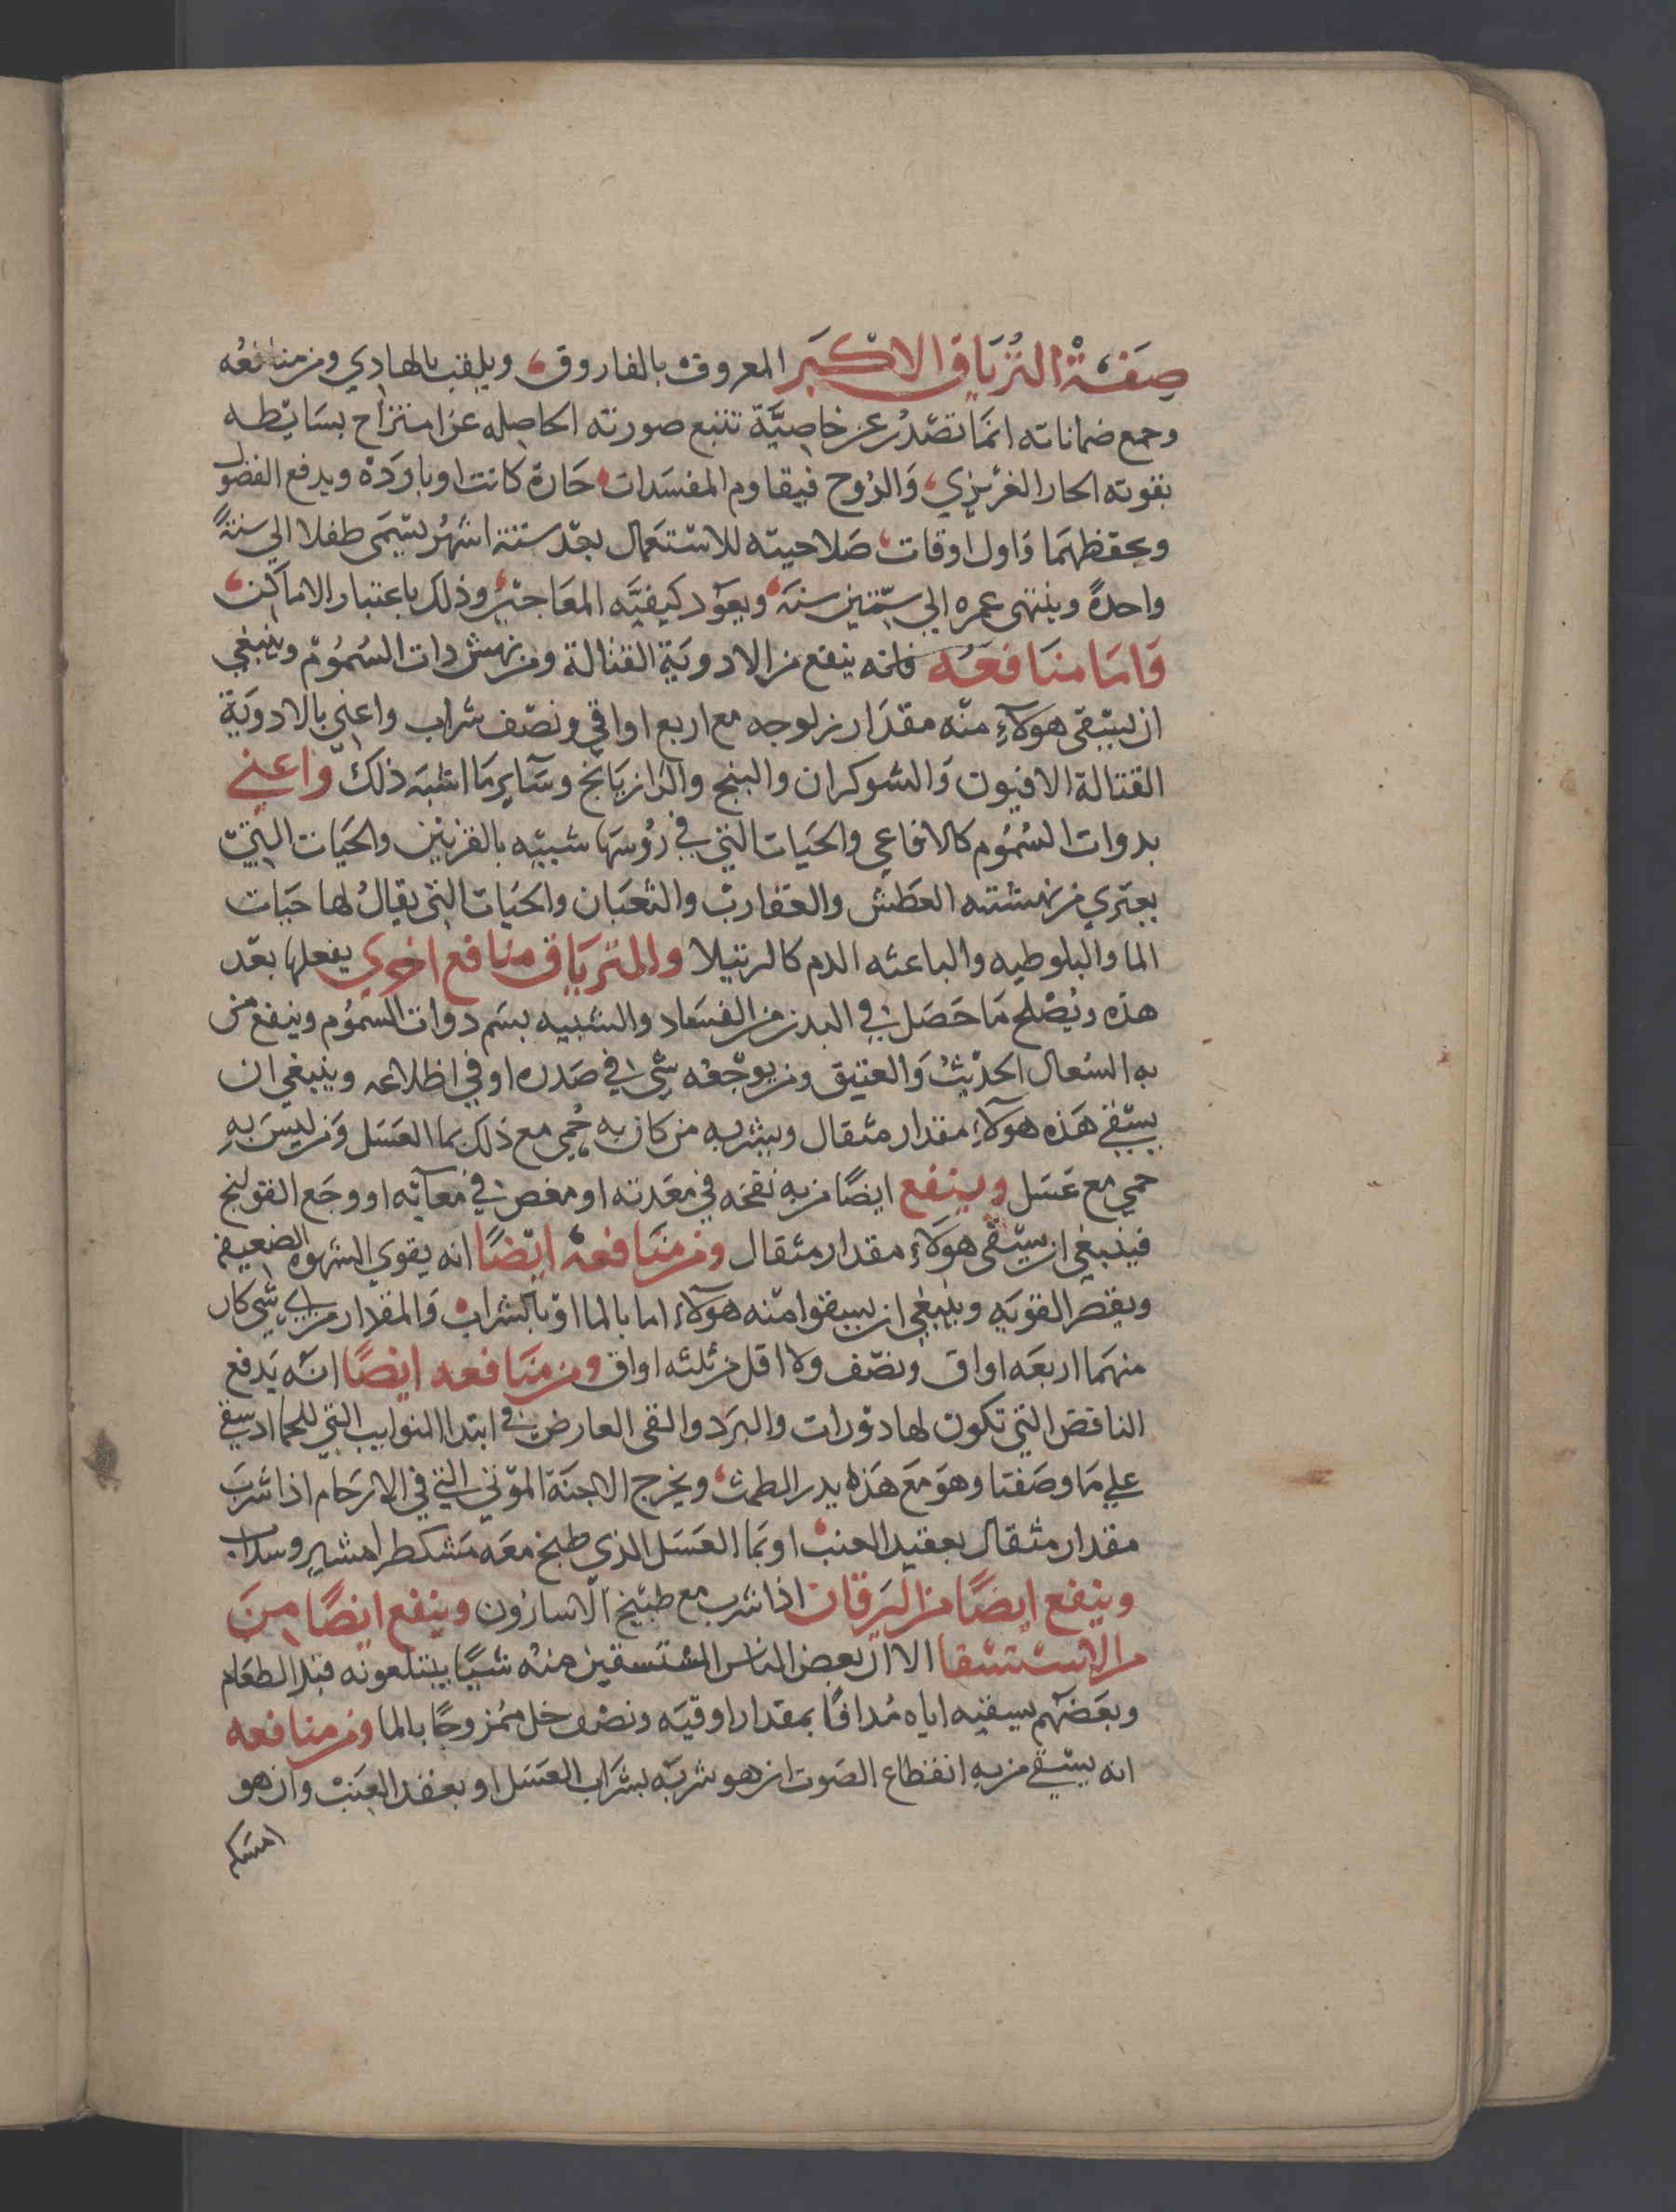 صفة الترياق الاكبر المعروف بالفاروق ويلقب بالهادي ومن منافعه
وجمع ضماناته انما تصدر عن خاصية تتبع صورته الحاصله عن امتزاج بسايطه
بقوته الحار الغريزي والروح فيقاوم المفسدات حارة كانت او باردة ويدفع الفضول
ويحفظهما واول اوقات صلاحيته للاستعمال بعد ستة اشهر يسمى طفلا الي سنة
واحدة وينتهى عمره الي ستين سنة ويعود كيفيه المعاجين وذلك باعتبار الاماكن
واما منافعه فانه ينفع من الادوية القتالة ومن نهش دات السموم وينبغي
ان يسقى هولاء منه مقدار نزلوجه مع اربع اواقي ونصف شراب واعني بالادوية
القتالة الافيون والشوكران والبنج والرازيانج وساير ما اشبه ذلك واعني
بدوات السموم كالافاعي والحيات التي في رؤسها شبيه بالقرنين والحيات التي
يعتري من نهشته العطش والعقارب والثعبان والحيات التي يقال لها حيات
الما والبلوطيه والباعثه الدم كالرتيلا وللترياق منافع اخري يفعلها بعد
هذه ويصلح ما حصل في البدن من الفساد والشبيه بسم دوات السموم وينفع من
به السعال الحديث والعتيق ومن يوجعه شى في صدره او في اظلاعه وينبغي ان
يسقي هذه هولاء مقدار مثقال ويشربه من كان به حمي مع ذلك بما العسل ومن ليس به
حمي مع عسل وينفع ايضا من به نفخه في معدته او مغص في معآئه او وجع القولنج
فينبغي ان يسقى هولاء مقدار مثقال ومن منافعه ايضا انه يقوي الشهوه الضعيفة
ويقصر القويه وينبغي ان يسقوا منه هولاء اما بالما او بالشراب والمقدار من اي شى كان
منهما اربعه اواق ونصف ولا اقل من ثلثه اواق ومن منافعه ايضا انه يدفع
النافض التي تكون لها دورات والبرد والقى العارض في ابتدا النوايب التي للحما اد سقي
علي ما وصفنا وهو مع هذه يدر الطمث ويخرج الاجنة الموتي التي في الارحام اذا شرب
مقدار مثقال بعقيد العنب او بما العسل الذي طبخ معه مشكطرامشير وسداب
وينفع ايضا من اليرقان اذا شرب مع طبيخ الاسارون وينفع ايضا من
من الاستسقا الا ان بعض الناس المستسقين منه شيا يبتلعونه قبل الطعام
وبعضهم يسقيه اياه مدافا بمقدار اوقيه ونصف خل ممزوجا بالما ومن منافعه
انه يسقي من به انقطاع الصوت ان هو شربه بشراب العسل او بعقد العنب وان هو
امسكه